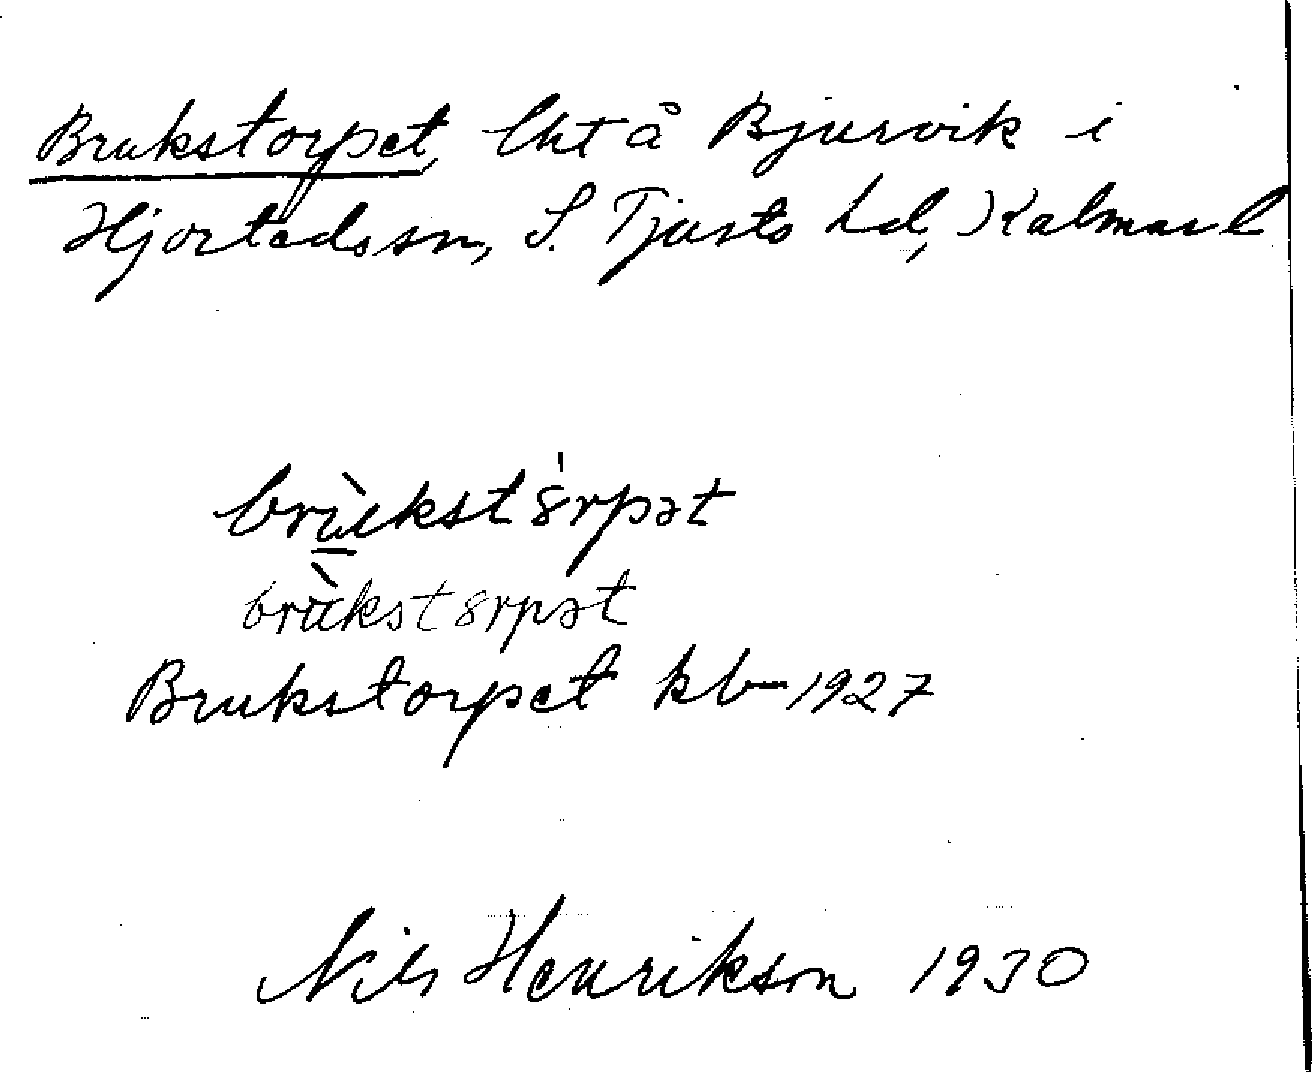 Brukstorpet, lht å Bjursvik i
Hjortedssn, S. Tjusts hd, Kalmar l
brùkst8rpət
brùkst8rpət
Brukstorpet kb 1927
Nils Henrikson 1930